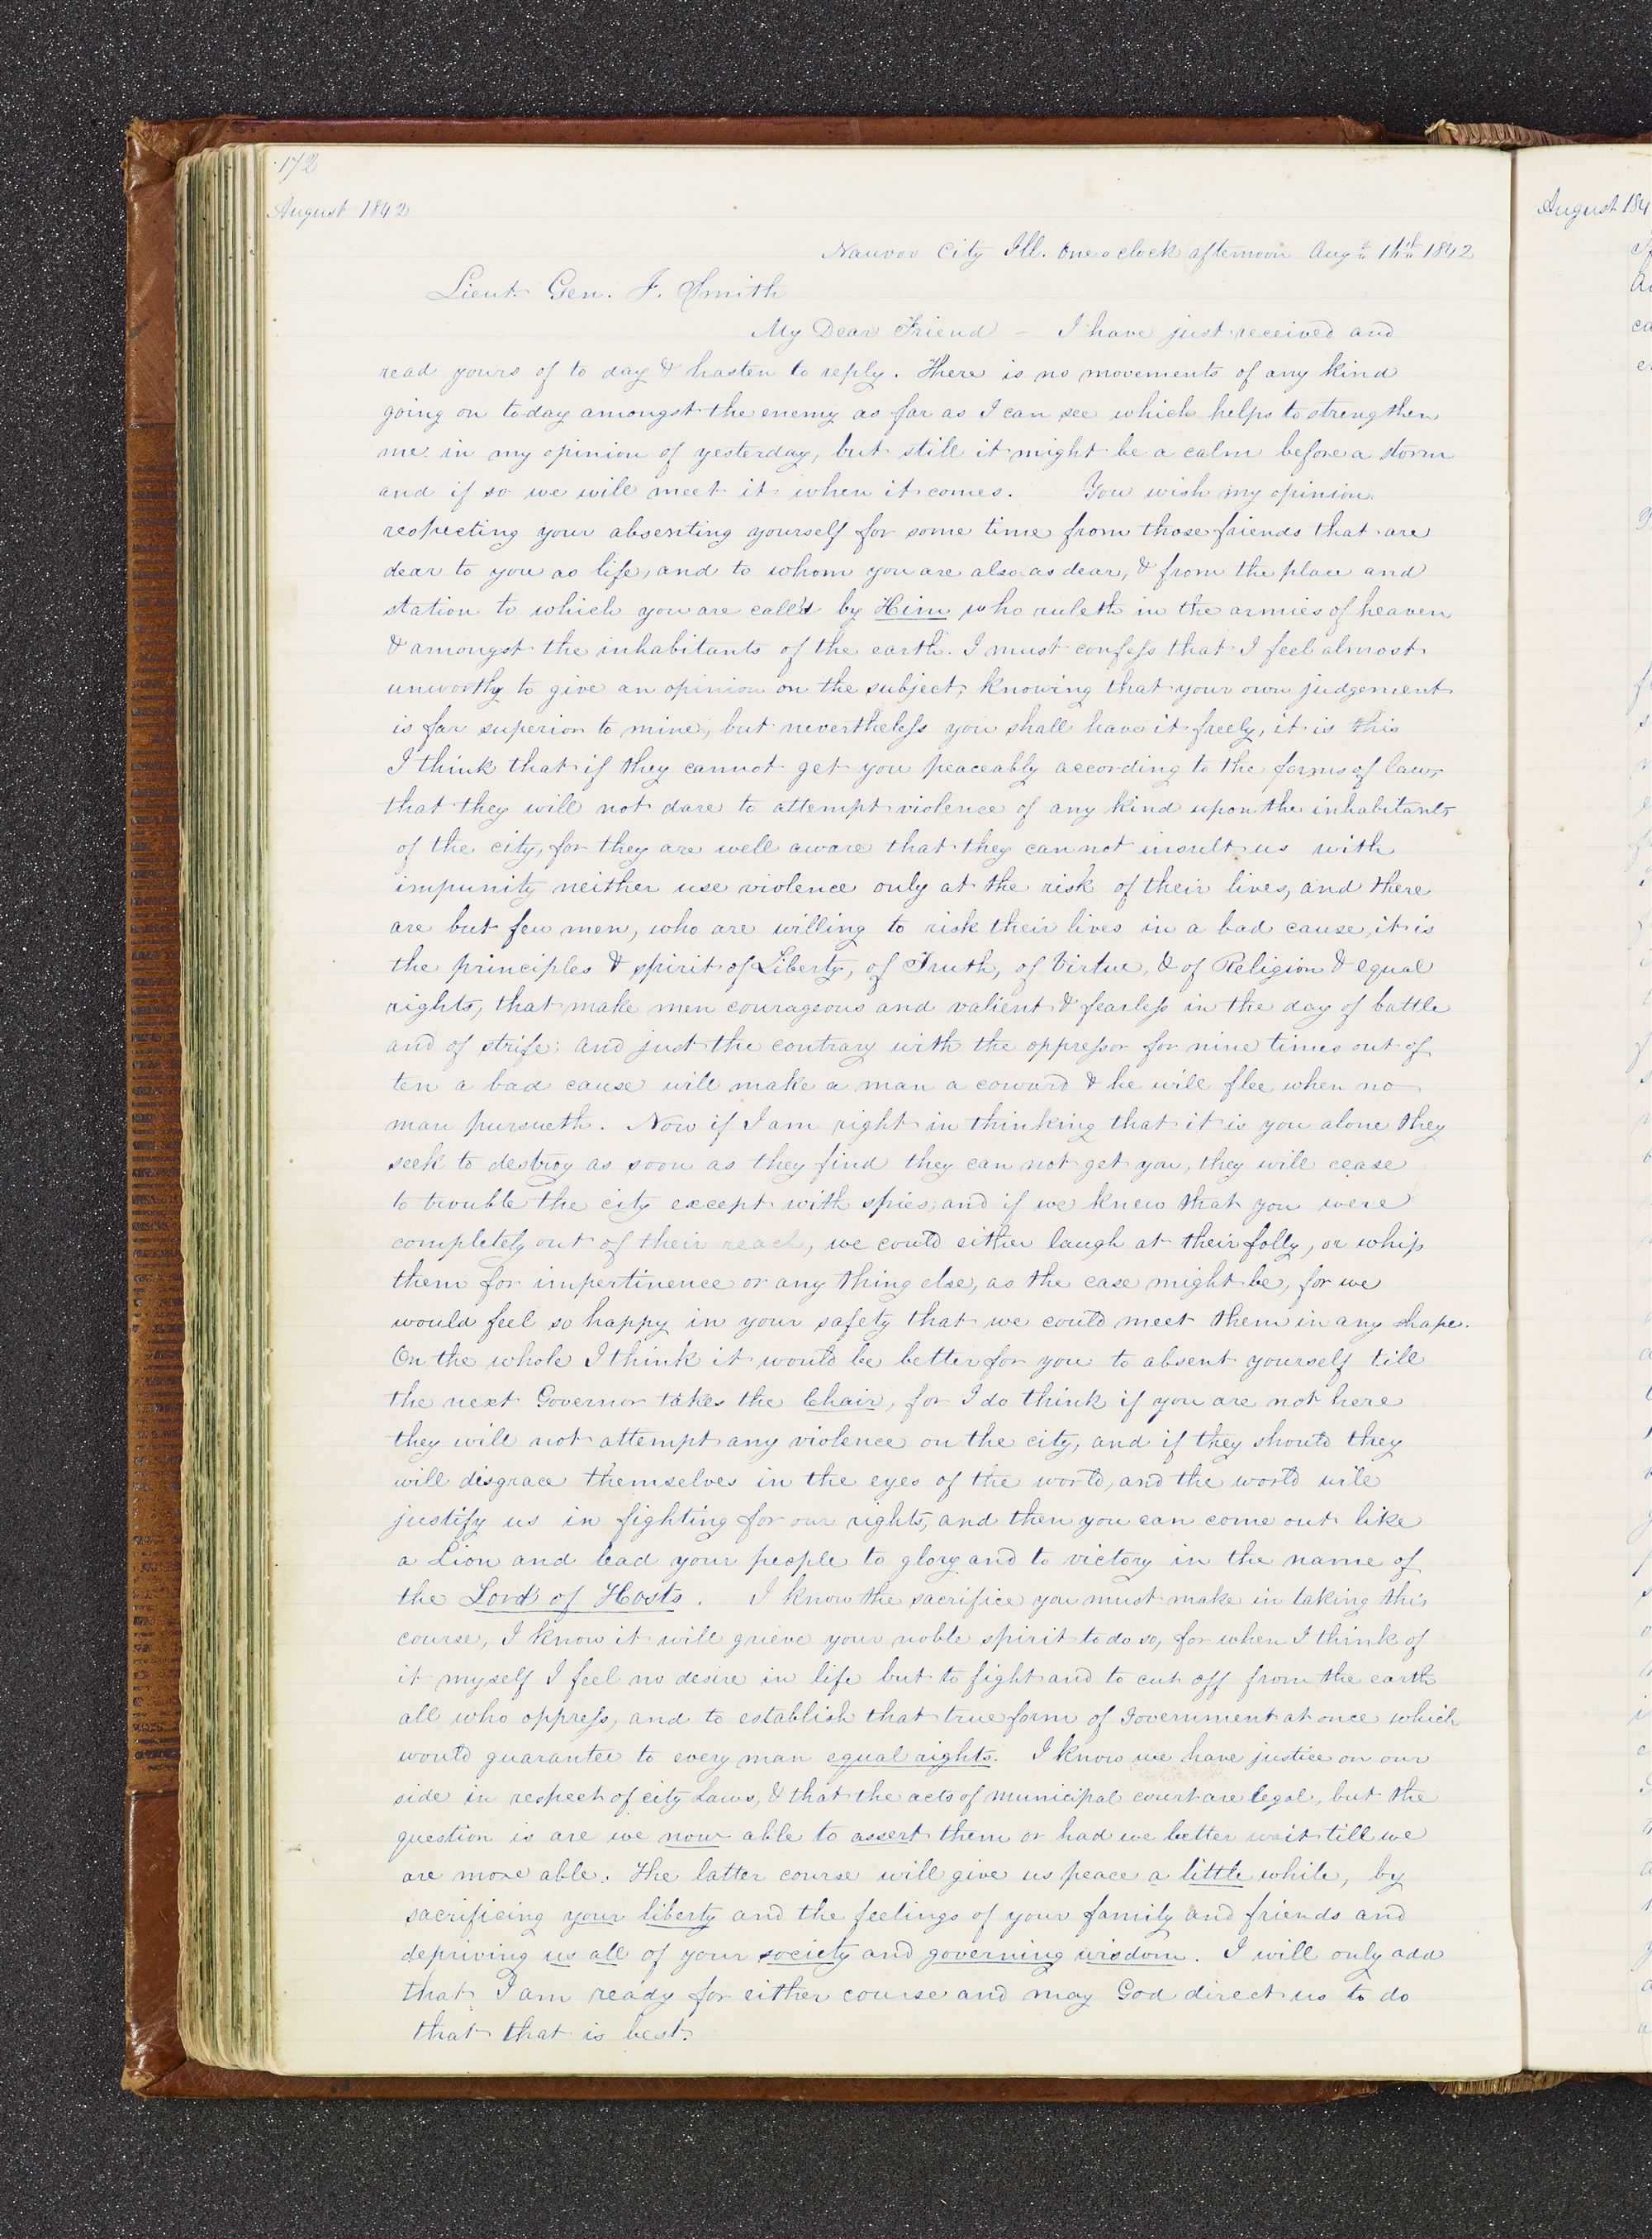 172
August 1842
Nauvoo City Ill. One o clock afternoon Augt 16th 1842
Lieut. Gen. J. Smith
My Dear Friend – I have just received and
read yours of to day & hasten to reply. There is no movements of any kind
going on to-day amongst the enemy as far as I can see which helps to strengthen
me in my opinion of yesterday, but still it might be a calm before a storm
and if so we will meet it when it comes. You wish my opinion
respecting your absenting yourself for some time from those friends that are
dear to you as life, and to whom you are also as dear, & from the place and
station to which you are call'd by Him who ruleth in the armies of heaven
& amongst the inhabitants of the earth. I must confess that I feel almost
unworthy to give an opinion on the subject, knowing that your own judgement
is far superior to mine, but nevertheless you shall have it freely, it is this
I think that if they cannot get you peaceably according to the forms of law,
that they will not dare to attempt violence of any kind upon the inhabitants
of the city, for they are well aware that they can not insult us with
impunity neither use violence only at the risk of their lives, and there
are but few men, who are willing to risk their lives in a bad cause, it is
the principles & spirit of Liberty, of Truth, of Virtue, & of Religion & equal
rights, that make men courageous and valient & fearless in the day of battle
and of strife; and just the contrary with the oppressor for nine times out of
ten a bad cause will make a man a coward & he will flee when no
man pursueth. Now if I am right in thinking that it is you alone they
seek to destroy as soon as they find they can not get you, they will cease
to trouble the city except with spies; and if we knew that you were
completely out of their reach, we could either laugh at their folly, or whip
them for impertinence or any thing else, as the case might be, for we
would feel so happy in your safety that we could meet them in any shape.
On the whole I think it would be better for you to absent yourself till
the next Governor takes the Chair, for I do think if you are not here
they will not attempt any violence on the city, and if they should they
will disgrace themselves in the eyes of the world, and the world will
justify us in fighting for our rights, and then you can come out like
a Lion and lead your people to glory and to victory in the name of
the Lord of Hosts. I know the sacrifice you must make in taking this
course, I know it will grieve your noble spirit to do so, for when I think of
it myself I feel no desire in life but to fight and to cut off from the earth
all who oppress, and to establish that true form of Government at once which
would guarantee to every man equal rights. I know we have justice on our
side in respect of city Laws, & that the acts of municipal court are legal, but the
question is are we now able to assert them or had we better wait till we
are more able. The latter course will give us peace a little while, by
sacrificing your liberty and the feelings of your family and friends and
depriving us all of your society and governing wisdom. I will only add
that I am ready for either course and may God direct us to do
that that is best.
August 184